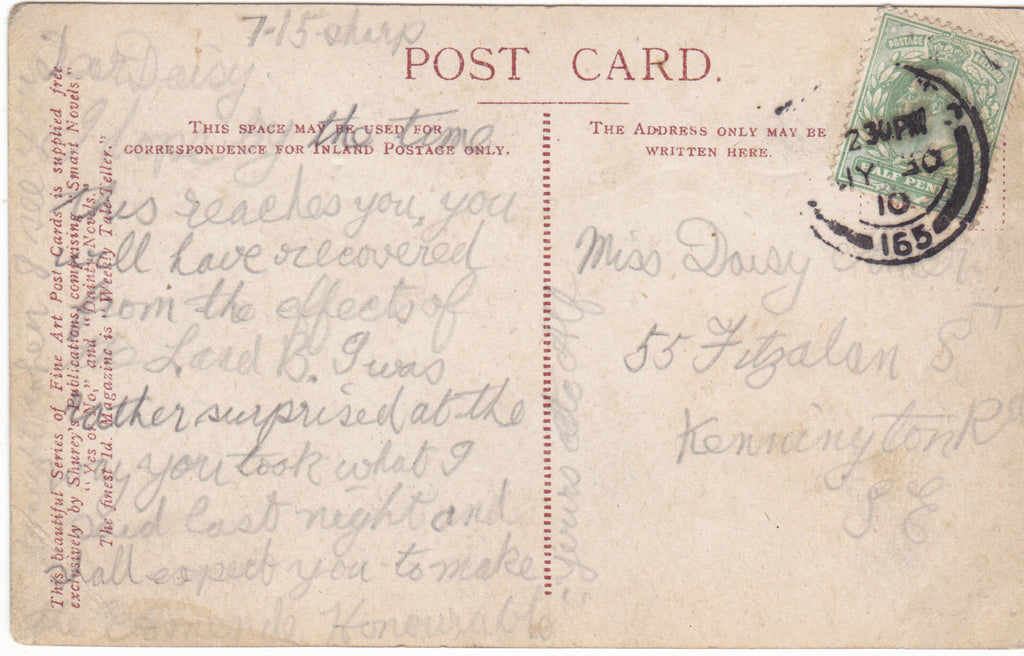 7-15 sharp
POST CARD.
Dear Daisy
I hope by the time
THIS SPACE MAY BE USED FOR
CORRESPONDENCE FOR INLAND POSTAGE ONLY.
this reaches you, you
will have recovered
from the effects of
L and B. I was
rather surprised at the
way you took what I
said last night and
shall expect you to make
the Amende Honourable
yours
THE ADDRESS ONLY MAY BE
WRITTEN HERE.
Miss Daisy
55 Fitzalan St
Kennington Rd
S E
POSTAGE
HALF PENNY
2 30 PM
JY 30
10
165
This beautiful Series of Fine Art Post Cards is supplied free
exclusively by Shurey's Publications, comprising "Smart Novels,"
"Yes or No," and "Dainty Novels."
The finest 1d. Magazine is "Weekly Tale-Teller."